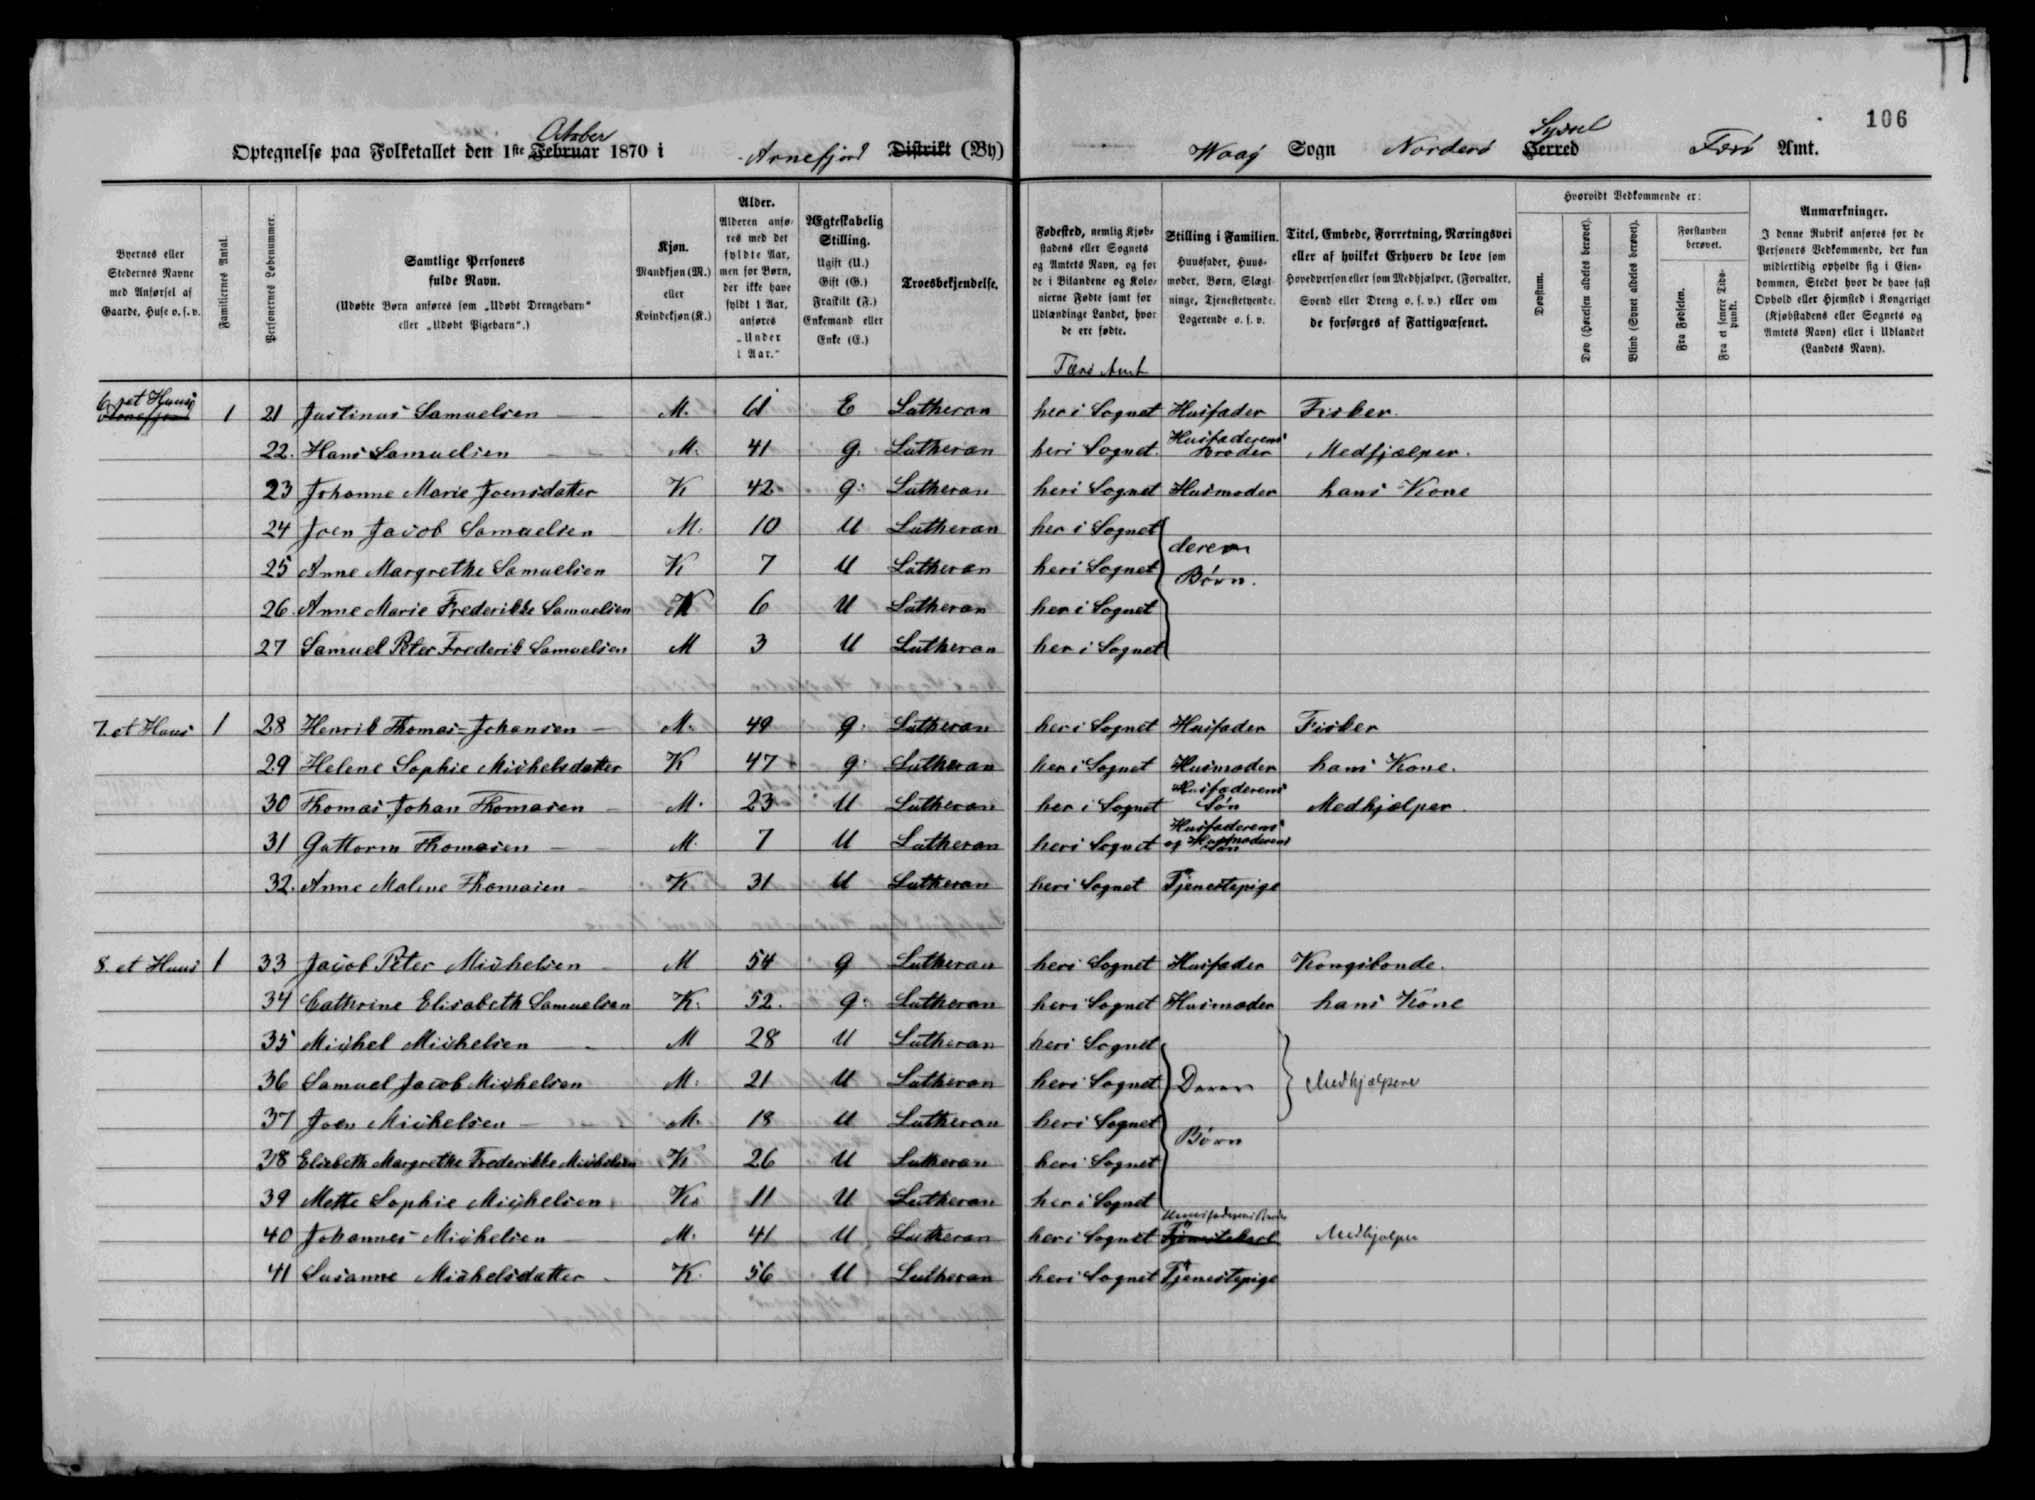 106
Optegnelse paa Folketallet den 1ste Februar October 1870 i Arnefjord Distrikt (By) Waag Sogn Norderø Herred Syssel Færø Amt.
Byernes eller Stedernes Navne med Anførsel af Gaarde, Huse o. s. v.
Familiernes Antal.
Personernes Løbenummer.
Samtlige Personers fulde Navn.
(Udøbte Børn anføres som „Udøbt Drengebarn“ eller „Udøbt Pigebarn“.)
Kjøn.
Mandkjøn (M.) eller Kvindekjøn (K.)
Alder.
Alderen anføres med det fyldte Aar, men for Børn, der ikke have fyldt 1 Aar, anføres „Under 1 Aar.“
Ægteskabelig Stilling.
Ugift (U.)
Gift (G.)
Fraskilt (F.)
Enkemand eller Enke (E.)
Troesbekjendelse.
Fødested, nemlig Kjøbstadens eller Sognets og Amtets Navn, og for de i Bilandene og Kolonierne Fødte samt for Udlændinge Landet, hvor de ere fødte.
Færø Amt
Stilling i Familien.
Huusfader, Huusmoder, Børn, Slægtninge, Tjenestetyende, Logerende o. s. v.
Titel, Embede, Forretning, Næringsvei eller af hvilket Erhverv de leve som Hovedperson eller som Medhjælper, (Forvalter, Svend eller Dreng o. s. v.) eller om de forsørges af Fattigvæsenet.
Hvorvidt Vedkommende er:
Døvstum.
Døv (Hørelsen aldeles berøvet).
Blind (Synet aldeles berøvet).
Forstanden berøvet.
Fra Fødselen.
Fra et senere Tidspunkt.
Anmærkninger.
I denne Rubrik anføres for de Personers Vedkommende, der kun midlertidig opholde sig i Eiendommen, Stedet hvor de have fast Ophold eller Hjemsted i Kongeriget (Kjøbstadens eller Sognets og Amtets Navn) eller i Udlandet (Landets Navn).
6. et Huus Arnefjord 1 21 Justinus Samuelsen M. 61 E Lutheran her i Sognet Husfader Fisker.
22. Hans Samuelsen M. 41 g. Lutheran her i Sognet. Husfaderens Broder Medhjælper.
23 Johanne Marie Joensdatter K 42 g. Lutheran her i Sognet Husmoder hans Kone
24 Joen Jacob Samuelsen M. 10 U Lutheran her i Sognet
25 Anne Margrethe Samuelsen K 7 U Lutheran her i Sognet deres Børn.
26. Anne Marie Frederikke Samuelsen K 6 U Lutheran her i Sognet
27 Samuel Peter Frederik Samuelsen M 3 U Lutheran her i Sognet
7. et Huus 1 28 Henrik Thomas Johansen M. 49 g. Lutheran her i Sognet Husfader Fisker
29 Helene Sophie Michelsdatter K 47 g. Lutheran her i Sognet Husmoder hans Kone.
30 Thomas Johan Thomasen M. 23 U Lutheran her i Sognet Husfaderens Søn Medhjælper.
31 Guttorm Thomasen M. 7 U Lutheran her i Sognet Husfaderens og Husmoderens Søn
32. Anne Malene Thomasen K 31 U Lutheran her i Sognet Tjenestepige
8. et Huus 1 33 Jacob Peter Michelsen M 54 g Lutheran her i Sognet Husfader Kongsbonde.
34 Cathrine Elisabeth Samuelsen K. 52. g. Lutheran her i Sognet Husmoder hans Kone
35 Michel Michelsen M 28 U Lutheran her i Sognet
36 Samuel Jacob Michelsen M. 21 U Lutheran her i Sognet Deres Medhjælpere
37 Joen Michelsen M. 18 U Lutheran her i Sognet
Børn
38 Elisbeth Margrethe Frederikke Michelsen K 26 U Lutheran her i Sognet
39 Mette Sophie Michelsen K. 11 U Lutheran her i Sognet
40 Johannes Michelsen M. 41 U Lutheran her i Sognet Huusfaderens Broder Tjenestekarl Medhjælper
41 Susanne Michelsdatter K. 56 U Lutheran her i Sognet Tjenestepige